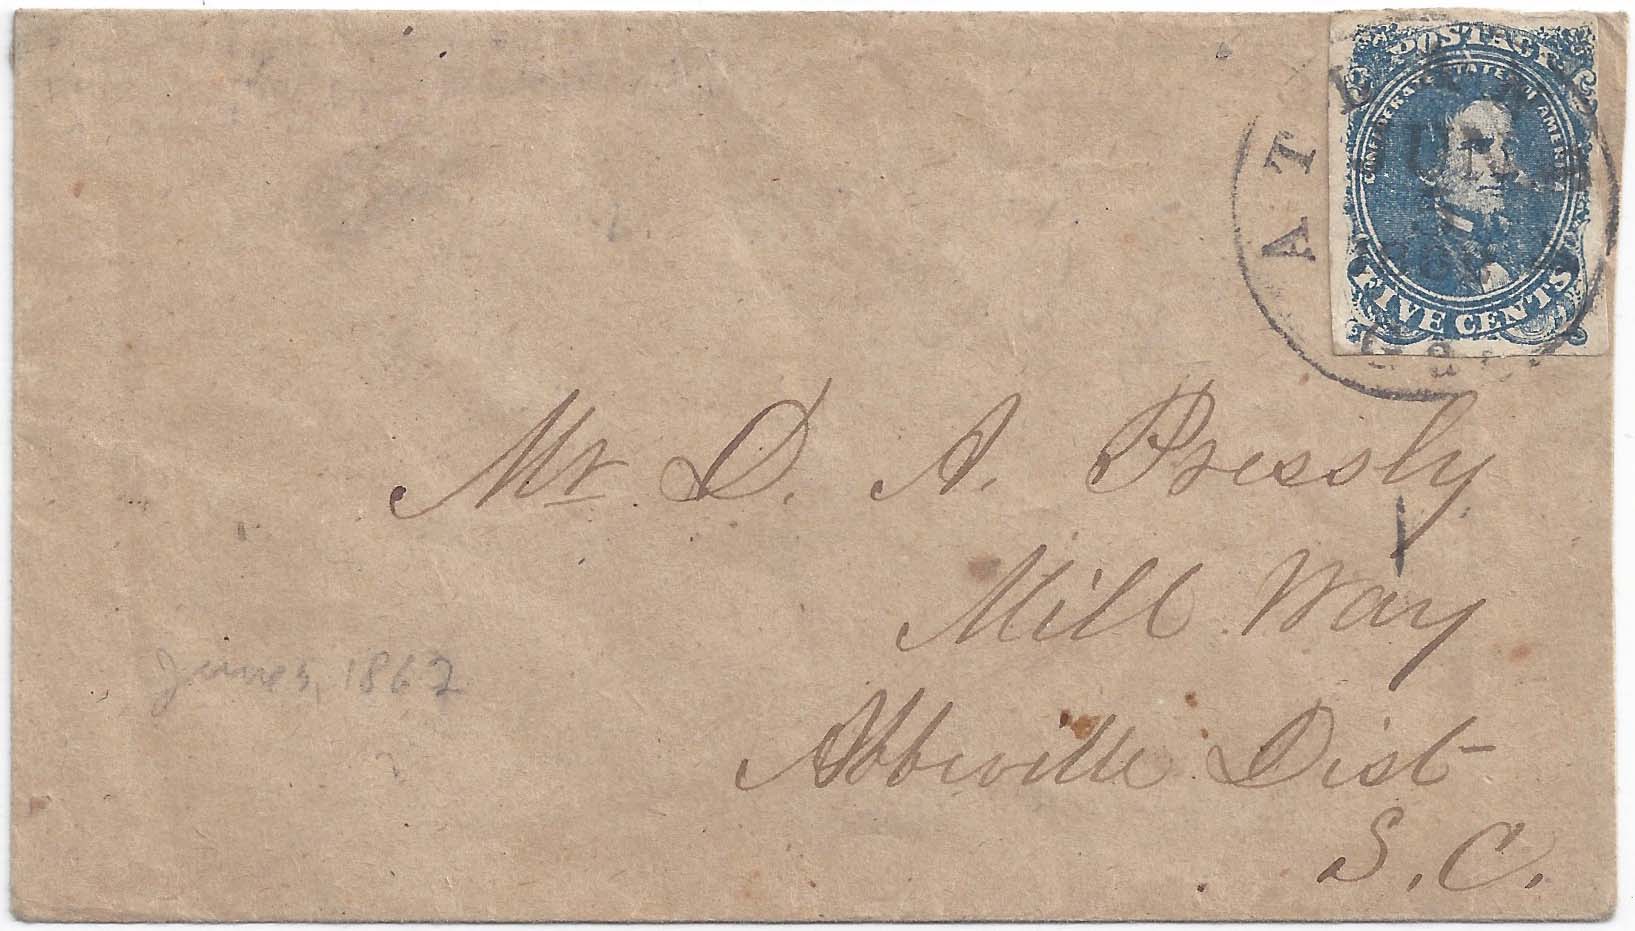 POSTAGE
CONFEDERATE STATES OF AMERICA
FIVE CENTS
ATHENS
Ga
Mr. D. A. Pressly
Mill Way
Abbeville Dist
S. C.